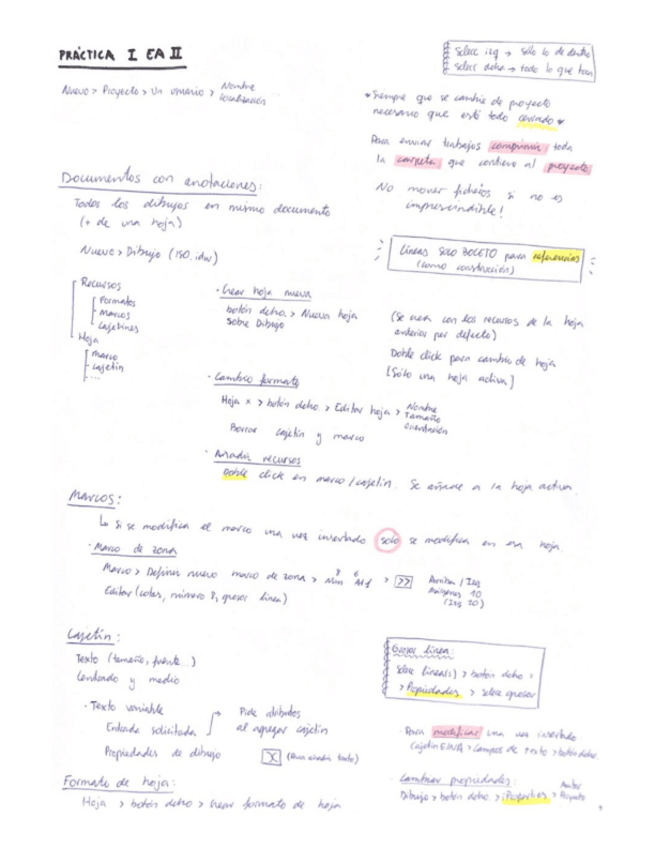 PRÁCTICA I EA II
Selecc izq → sólo lo de dentro
selecc dcha → todo lo que toca
Nuevo > Proyecto > Un usuario > Nombre
Localización
* Siempre que se cambie de proyecto
necesario que esté todo cerrado *
Para enviar trabajos comprimir toda
la carpeta que contiene al proyecto
No mover ficheros si no es
imprescindible!
Documentos con anotaciones:
Todos los dibujos en mismo documento
(+ de una hoja)
Nuevo > Dibujo (ISO.idw)
Líneas SOLO BOCETO para referencias
(como construcción)
Recursos
Formatos
Marcos
Cajetines
Hoja
marco
cajetín
...
· Crear hoja nueva
botón dcho. > Nueva hoja
sobre Dibujo
(Se crea con los recursos de la hoja
anterior por defecto)
Doble click para cambio de hoja
[Sólo una hoja activa]
· Cambio formato
Hoja x > botón dcho > Editar hoja > Nombre
Tamaño
orientación
Borrar cajetín y marco
· Añadir recursos
Doble click en marco/cajetín. Se añade a la hoja activa.
MARCOS:
↳ Si se modifica el marco una vez insertado solo se modifica en esa hoja.
· Marco de zona
Marco > Definir nuevo marco de zona > 8 6 > >>
Editar (cotas, número 8, grosor línea)
Arriba / Izq
Márgenes 10
(Izq 20)
Cajetín:
Texto (tamaño, fuente...)
Centrado y medio
Grosor línea:
Selec línea(s) > botón dcho >
> Propiedades > selec grosor
· Texto variable
Entrada solicitada → Pide atributos
al agregar cajetín
Propiedades de dibujo X (Para añadir todo)
· Para modificar una vez insertado
Cajetín EINA > Campos de texto > botón dcho.
Formato de hoja:
Hoja > botón dcho > Crear formato de hoja
· Cambiar propiedades:
Dibujo > botón dcho. > iProperties > Autor
Proyecto